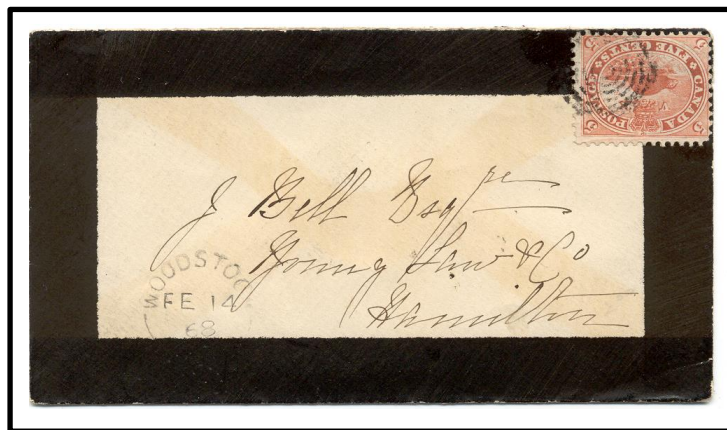 CANADA POSTAGE
FIVE CENTS
5 5 5 5
J Bell Esqre
Young Law & Co
Hamilton
WOODSTOC
FE 14
68